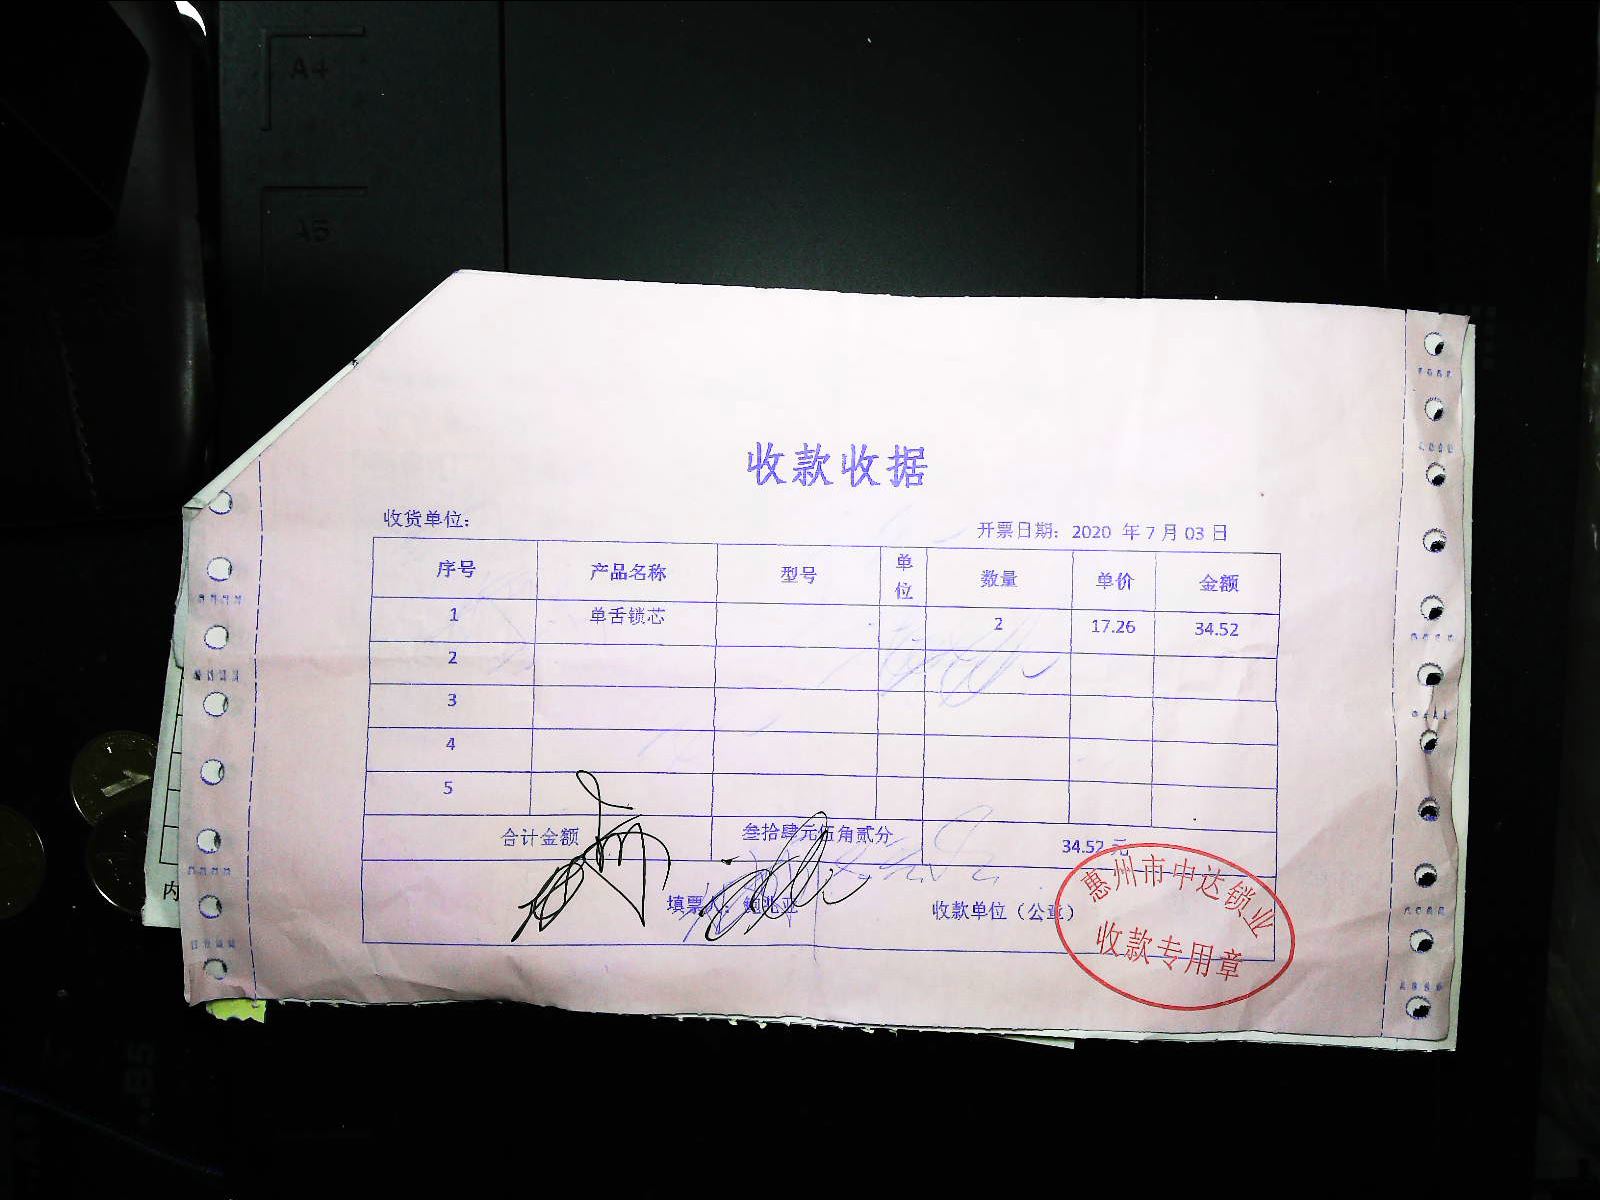 A4
A5
收款收据
收货单位：
开票日期：2020 年 7 月 03 日
序号 产品名称 型号 单位 数量 单价 金额
1 单舌锁芯 2 17.26 34.52
2
3
4
5
合计金额 叁拾肆元伍角贰分 34.52 元
填票人： 收款单位（公章）
惠州市中达锁业
收款专用章
内
B5